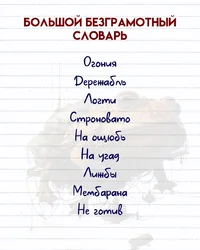 БОЛЬШОЙ БЕЗГРАМОТНЫЙ
СЛОВАРЬ
Огония
Дережабль
Логти
Строновато
На ощюбь
На угад
Лимбы
Мембарана
Не готив